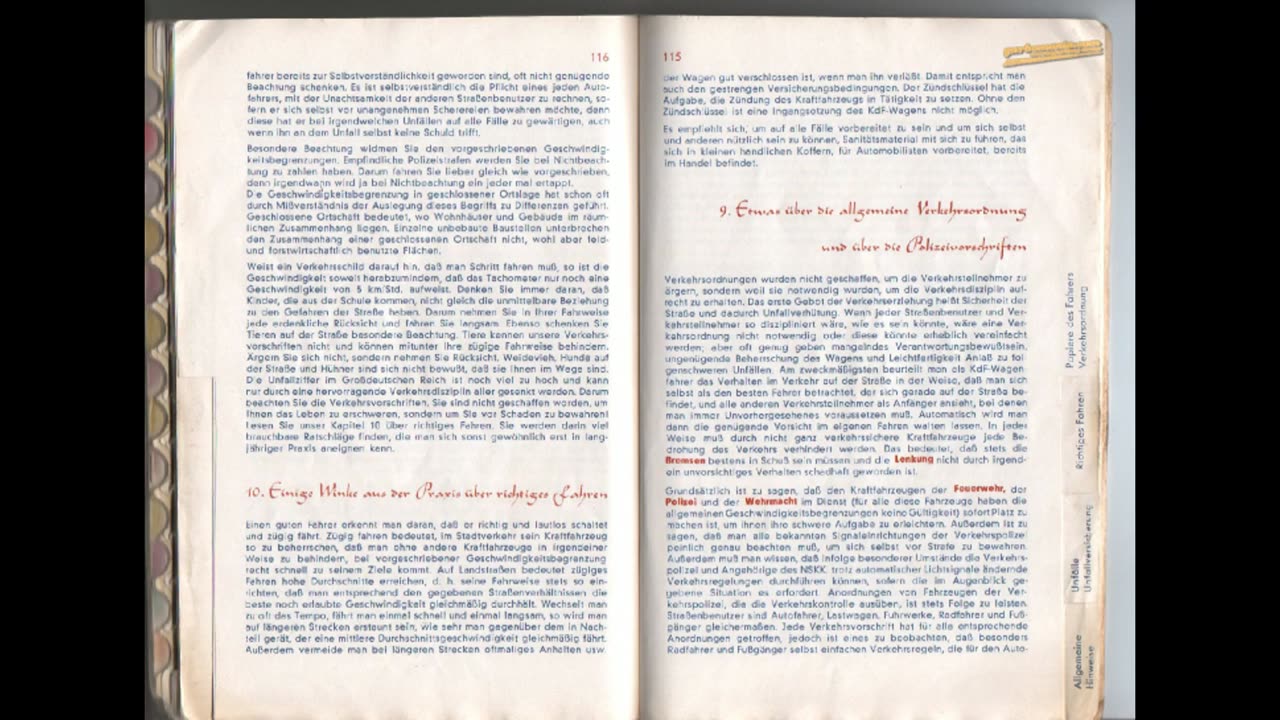 116
fahrer bereits zur Selbstverständlichkeit geworden sind, oft nicht genügende
Beachtung schenken. Es ist selbstverständlich die Pflicht eines jeden Auto-
fahrers, mit der Unachtsamkeit der anderen Straßenbenutzer zu rechnen, so-
fern er sich selbst vor unangenehmen Scherereien bewahren möchte, denn
diese hat er bei irgendwelchen Unfällen auf alle Fälle zu gewärtigen, auch
wenn ihn an dem Unfall selbst keine Schuld trifft.
Besondere Beachtung widmen Sie den vorgeschriebenen Geschwindig-
keitsbegrenzungen. Empfindliche Polizeistrafen werden Sie bei Nichtbeach-
tung zu zahlen haben. Darum fahren Sie lieber gleich wie vorgeschrieben,
denn irgendwann wird ja bei Nichtbeachtung ein jeder mal ertappt.
Die Geschwindigkeitsbegrenzung in geschlossener Ortslage hat schon oft
durch Mißverständnis der Auslegung dieses Begriffs zu Differenzen geführt.
Geschlossene Ortschaft bedeutet, wo Wohnhäuser und Gebäude im räum-
lichen Zusammenhang liegen. Einzelne unbebaute Baustellen unterbrechen
den Zusammenhang einer geschlossenen Ortschaft nicht, wohl aber feld-
und forstwirtschaftlich benutzte Flächen.
Weist ein Verkehrsschild darauf hin, daß man Schritt fahren muß, so ist die
Geschwindigkeit soweit herabzumindern, daß das Tachometer nur noch eine
Geschwindigkeit von 5 km/Std. aufweist. Denken Sie immer daran, daß
Kinder, die aus der Schule kommen, nicht gleich die unmittelbare Beziehung
zu den Gefahren der Straße haben. Darum nehmen Sie in Ihrer Fahrweise
jede erdenkliche Rücksicht und fahren Sie langsam. Ebenso schenken Sie
Tieren auf der Straße besondere Beachtung. Tiere kennen unsere Verkehrs-
vorschriften nicht und können mitunter Ihre zügige Fahrweise behindern.
Ärgern Sie sich nicht, sondern nehmen Sie Rücksicht. Weidevieh, Hunde auf
der Straße und Hühner sind sich nicht bewußt, daß sie Ihnen im Wege sind.
Die Unfallziffer im Großdeutschen Reich ist noch viel zu hoch und kann
nur durch eine hervorragende Verkehrsdisziplin aller gesenkt werden. Darum
beachten Sie die Verkehrsvorschriften, Sie sind nicht geschaffen worden, um
Ihnen das Leben zu erschweren, sondern um Sie vor Schaden zu bewahren!
Lesen Sie unser Kapitel 10 über richtiges Fahren. Sie werden darin viel
brauchbare Ratschläge finden, die man sich sonst gewöhnlich erst in lang-
jähriger Praxis aneignen kann.
10. Einige Winke aus der Praxis über richtiges Fahren
Einen guten Fahrer erkennt man daran, daß er richtig und lautlos schaltet
und zügig fährt. Zügig fahren bedeutet, im Stadtverkehr sein Kraftfahrzeug
so zu beherrschen, daß man ohne andere Kraftfahrzeuge in irgendeiner
Weise zu behindern, bei vorgeschriebener Geschwindigkeitsbegrenzung
recht schnell zu seinem Ziele kommt. Auf Landstraßen bedeutet zügiges
Fahren hohe Durchschnitte erreichen, d. h. seine Fahrweise stets so ein-
richten, daß man entsprechend den gegebenen Straßenverhältnissen die
beste noch erlaubte Geschwindigkeit gleichmäßig durchhält. Wechselt man
zu oft das Tempo, fährt man einmal schnell und einmal langsam, so wird man
auf längeren Strecken erstaunt sein, wie sehr man gegenüber dem in Nach-
teil gerät, der eine mittlere Durchschnittsgeschwindigkeit gleichmäßig fährt.
Außerdem vermeide man bei längeren Strecken oftmaliges Anhalten usw.
115
der Wagen gut verschlossen ist, wenn man ihn verläßt. Damit entspricht man
auch den gestrengen Versicherungsbedingungen. Der Zündschlüssel hat die
Aufgabe, die Zündung des Kraftfahrzeugs in Tätigkeit zu setzen. Ohne den
Zündschlüssel ist eine Ingangsetzung des KdF-Wagens nicht möglich.
Es empfiehlt sich, um auf alle Fälle vorbereitet zu sein und um sich selbst
und anderen nützlich sein zu können, Sanitätsmaterial mit sich zu führen, das
sich in kleinen handlichen Koffern, für Automobilisten vorbereitet, bereits
im Handel befindet.
9. Etwas über die allgemeine Verkehrsordnung
und über die Polizeivorschriften
Verkehrsordnungen wurden nicht geschaffen, um die Verkehrsteilnehmer zu
ärgern, sondern weil sie notwendig wurden, um die Verkehrsdisziplin auf-
recht zu erhalten. Das erste Gebot der Verkehrserziehung heißt Sicherheit der
Straße und dadurch Unfallverhütung. Wenn jeder Straßenbenutzer und Ver-
kehrsteilnehmer so diszipliniert wäre, wie es sein könnte, wäre eine Ver-
kehrsordnung nicht notwendig oder diese könnte erheblich vereinfacht
werden; aber oft genug geben mangelndes Verantwortungsbewußtsein,
ungenügende Beherrschung des Wagens und Leichtfertigkeit Anlaß zu fol-
genschweren Unfällen. Am zweckmäßigsten beurteilt man als KdF-Wagen-
fahrer das Verhalten im Verkehr auf der Straße in der Weise, daß man sich
selbst als den besten Fahrer betrachtet, der sich gerade auf der Straße be-
findet, und alle anderen Verkehrsteilnehmer als Anfänger ansieht, bei denen
man immer Unvorhergesehenes voraussetzen muß. Automatisch wird man
dann die genügende Vorsicht im eigenen Fahren walten lassen. In jeder
Weise muß durch nicht ganz verkehrssichere Kraftfahrzeuge jede Be-
drohung des Verkehrs verhindert werden. Das bedeutet, daß stets die
Bremsen bestens in Schuß sein müssen und die Lenkung nicht durch irgend-
ein unvorsichtiges Verhalten schadhaft geworden ist.
Grundsätzlich ist zu sagen, daß den Kraftfahrzeugen der Feuerwehr, der
Polizei und der Wehrmacht im Dienst (für alle diese Fahrzeuge haben die
allgemeinen Geschwindigkeitsbegrenzungen keine Gültigkeit) sofort Platz zu
machen ist, um ihnen ihre schwere Aufgabe zu erleichtern. Außerdem ist zu
sagen, daß man alle bekannten Signaleinrichtungen der Verkehrspolizei
peinlich genau beachten muß, um sich selbst vor Strafe zu bewahren.
Außerdem muß man wissen, daß infolge besonderer Umstände die Verkehrs-
polizei und Angehörige des NSKK trotz automatischer Lichtsignale ändernde
Verkehrsregelungen durchführen können, sofern die im Augenblick ge-
gebene Situation es erfordert. Anordnungen von Fahrzeugen der Ver-
kehrspolizei, die die Verkehrskontrolle ausüben, ist stets Folge zu leisten.
Straßenbenutzer sind Autofahrer, Lastwagen, Fuhrwerke, Radfahrer und Fuß-
gänger gleichermaßen. Jede Verkehrsvorschrift hat für alle entsprechende
Anordnungen getroffen, jedoch ist eines zu beobachten, daß besonders
Radfahrer und Fußgänger selbst einfachen Verkehrsregeln, die für den Auto-
Papiere des Fahrers
Verkehrsordnung
Richtiges Fahren
Unfälle
Unfallversicherung
Allgemeine
Hinweise